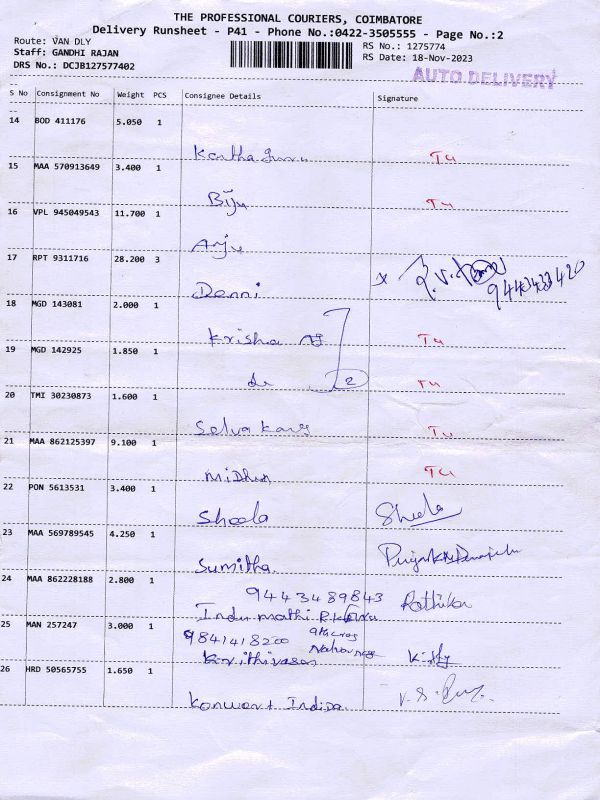 THE PROFESSIONAL COURIERS, COIMBATORE
Delivery Runsheet - P41 - Phone No.:0422-3505555 - Page No.:2
Route: VAN DLY
Staff: GANDHI RAJAN
DRS No.: DCJB127577402
RS No.: 1275774
RS Date: 18-Nov-2023
AUTO DELIVERY
S No Consignment No Weight PCS Consignee Details Signature
14 BOD 411176 5.050 1
Tu
15 MAA 570913649 3.400 1
Biju Tu
16 VPL 945049543 11.700 1
Anju
17 RPT 9311716 28.200 3
Denni x 9443433420
18 MGD 143081 2.000 1
Krisha Tu
19 MGD 142925 1.850 1
do 2 Tu
20 TMI 30230873 1.600 1
Tu
21 MAA 862125397 9.100 1
Midhun Tu
22 PON 5613531 3.400 1
Sheela Sheela
23 MAA 569789545 4.250 1
Sumitha
24 MAA 862228188 2.800 1
9443489843
Indu mathi
25 MAN 257247 3.000 1
9841418200
26 HRD 50565755 1.650 1